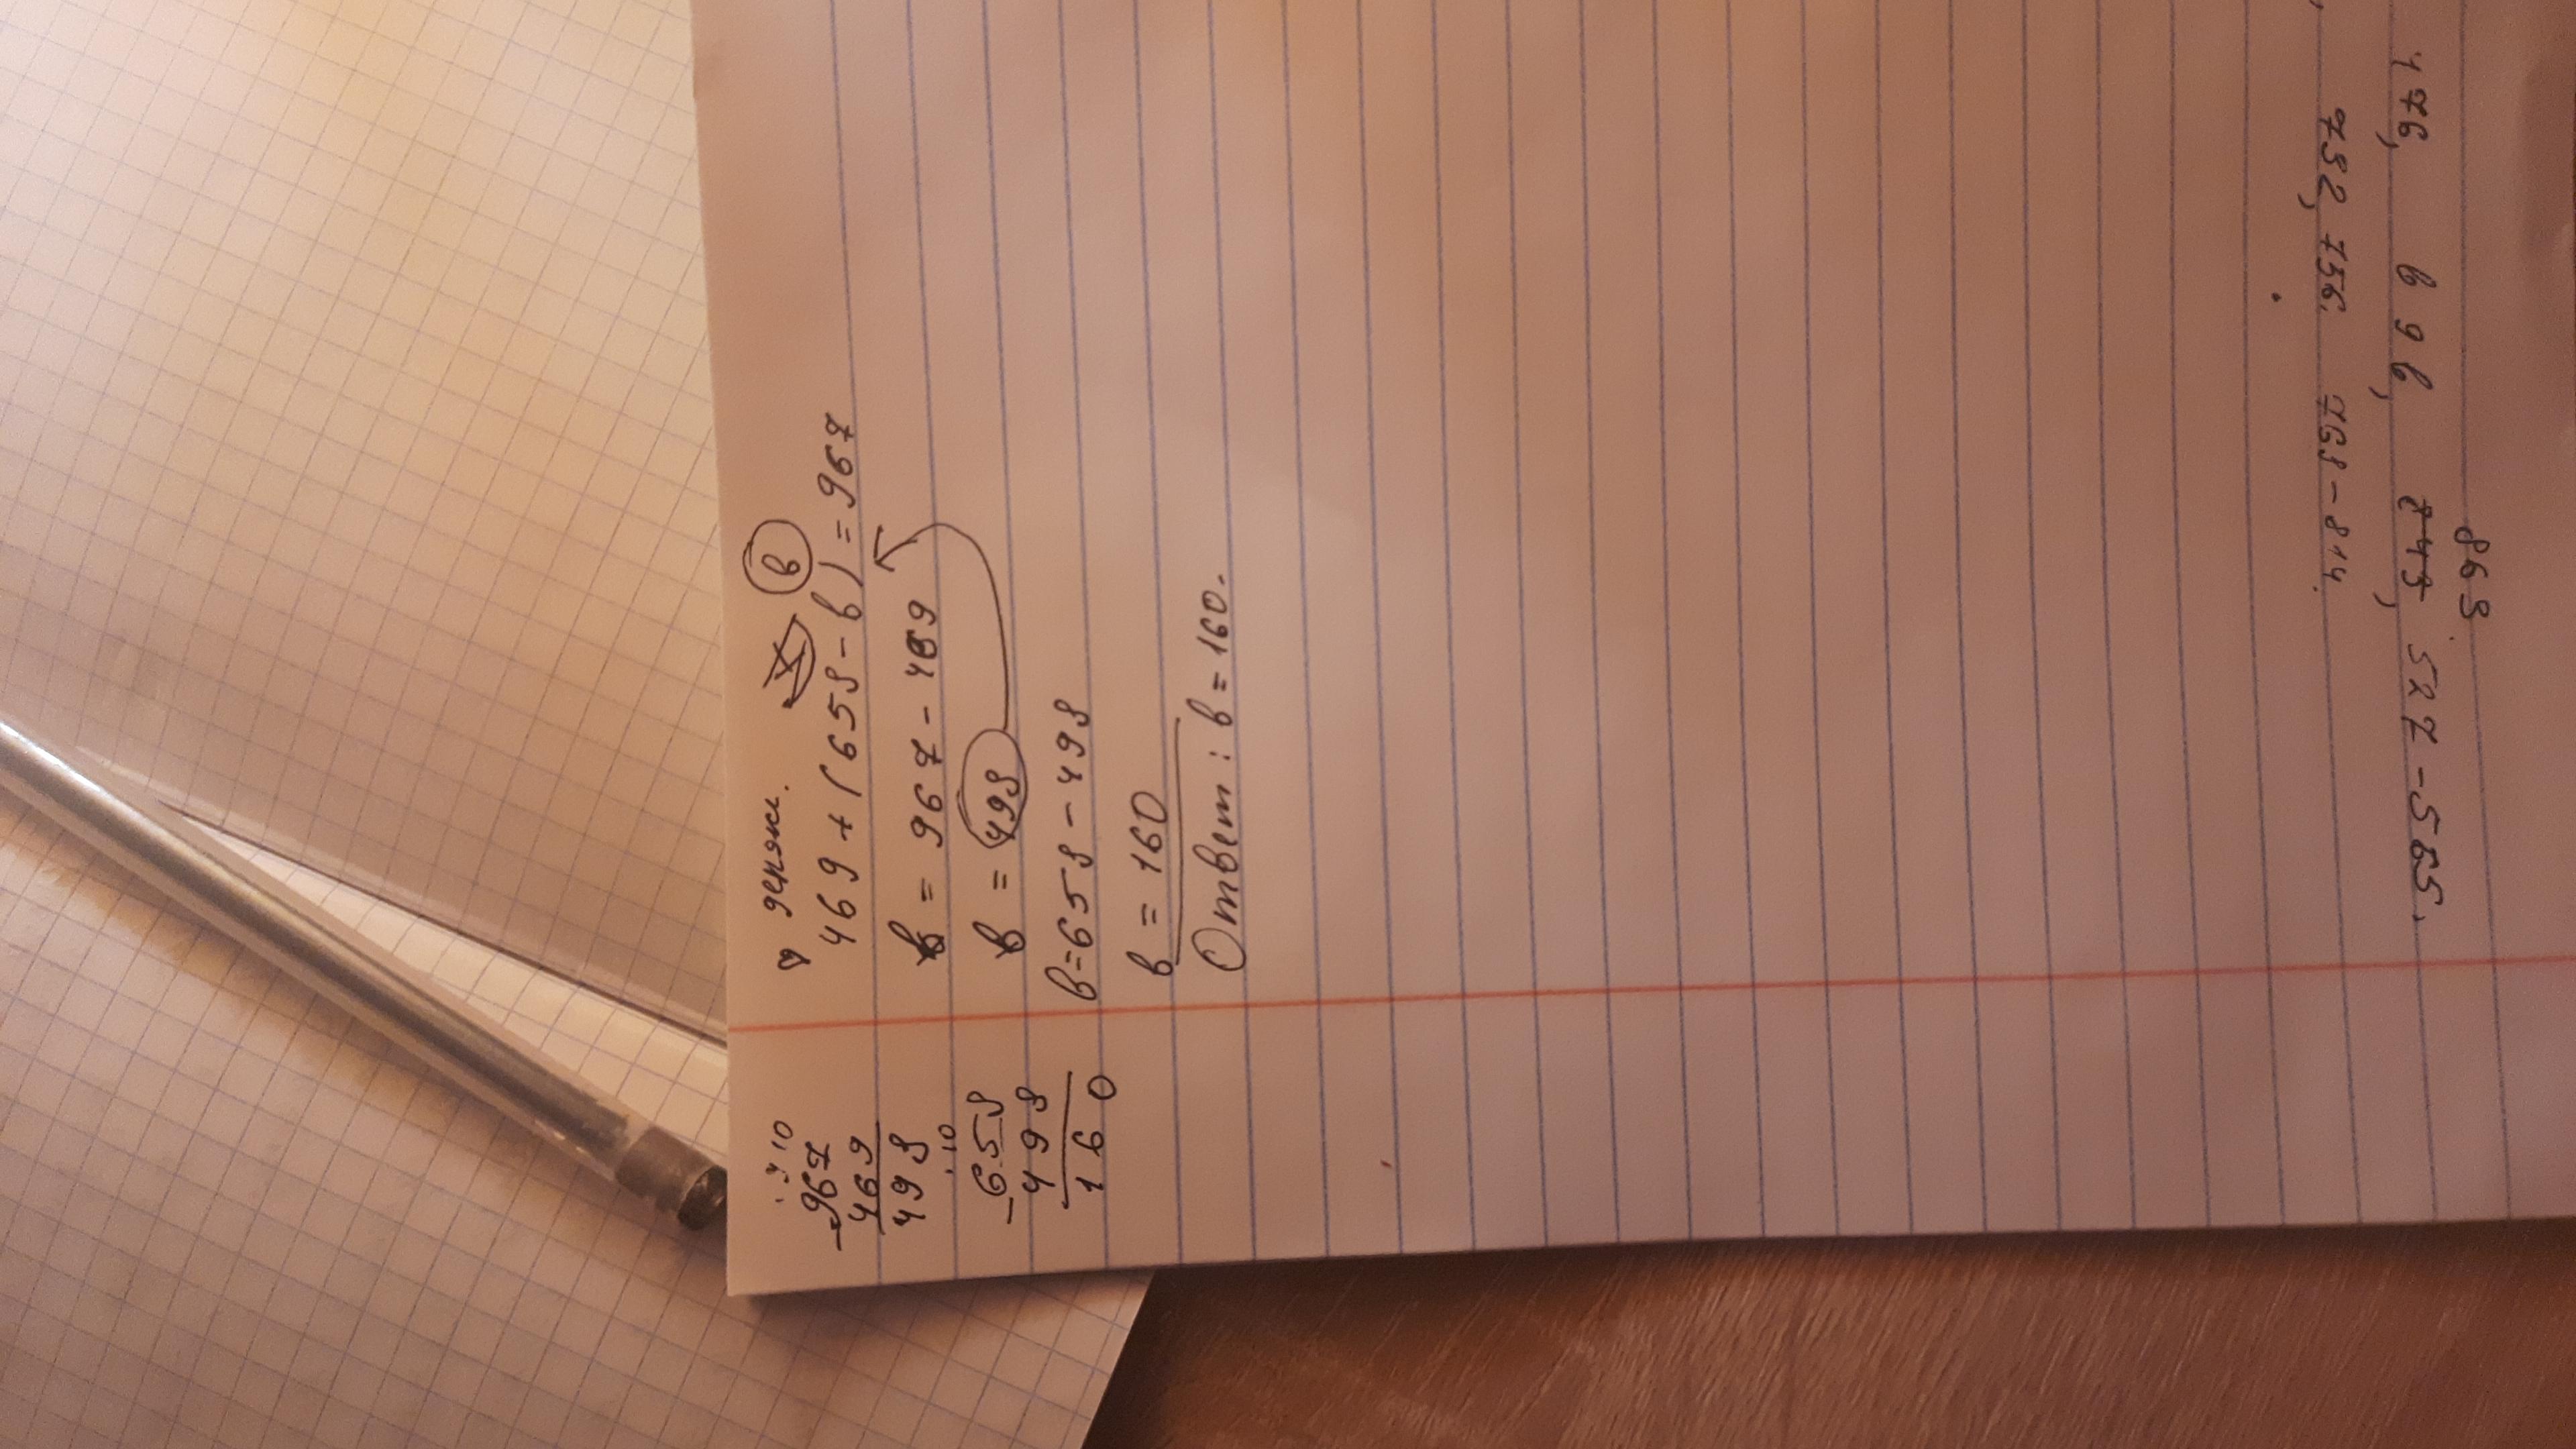 в
469 + (658 - в) = 967
в = 967 - 469
в = 498
в = 658 - 498
в = 160
Ответ : в = 160.
10
- 967
469
498
10
- 658
498
160
863
176, 696, 843, 527 - 565.
782, 756. 768 - 814.